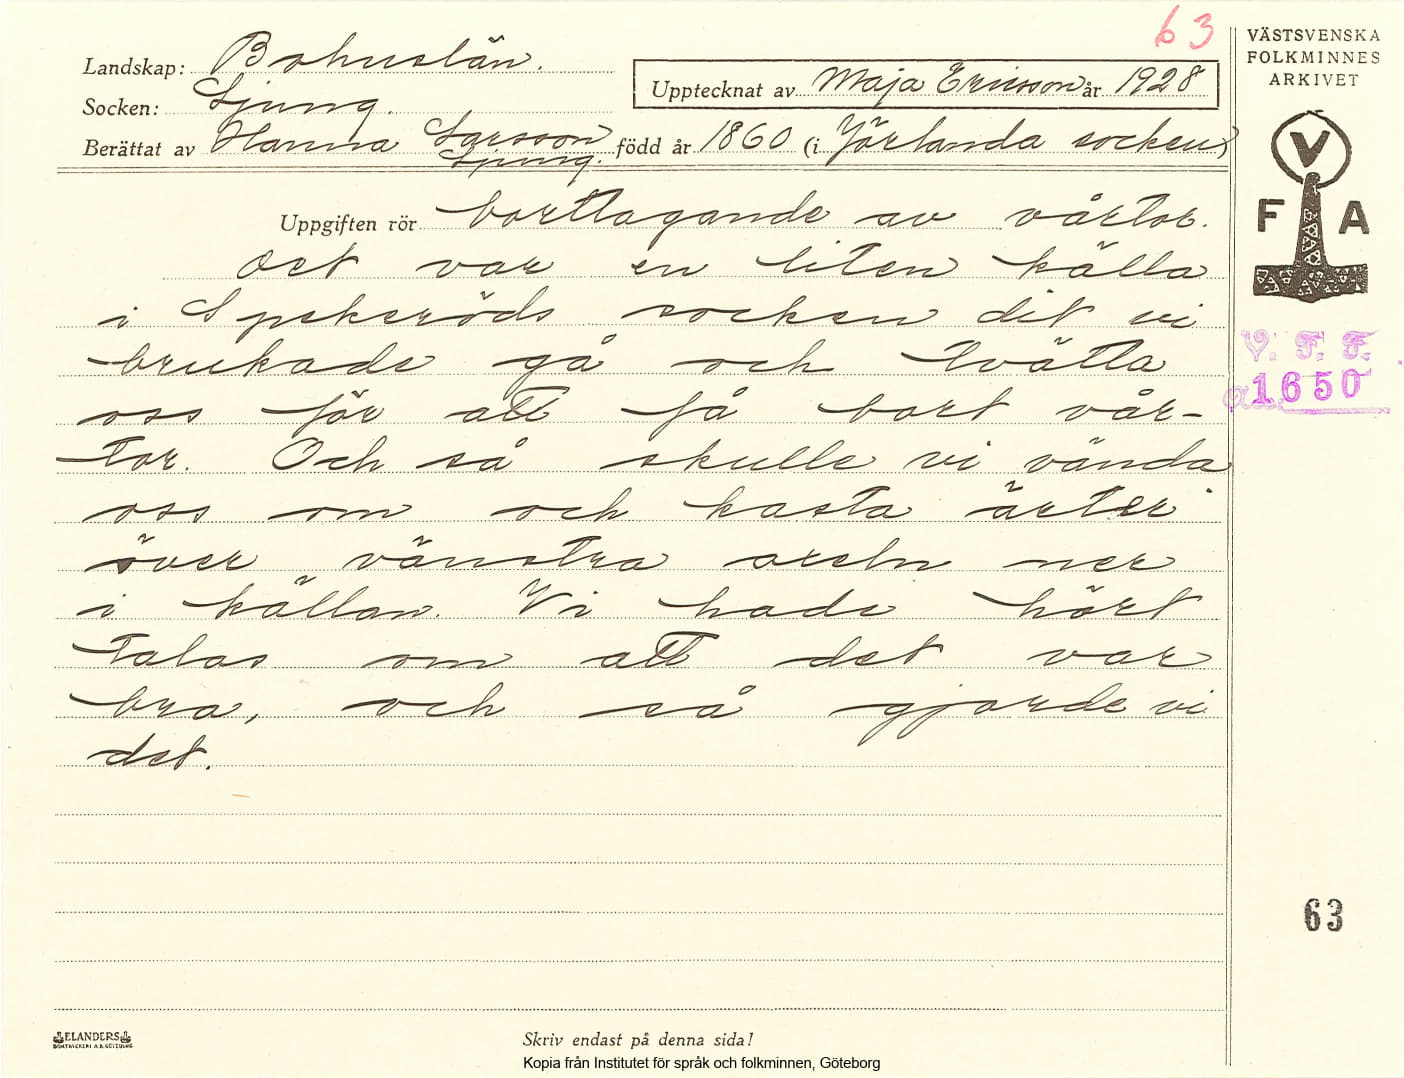 63
VÄSTSVENSKA
FOLKMINNES
ARKIVET
Landskap: Bohuslän.
Upptecknat av Maja Ericsson år 1928
Socken: Ljung.
Berättat av Hanna Larsson född år 1860 (i Jörlanda socken)
Ljung.
V
F A
Uppgiften rör borttagande av vårtor.
Det var en liten källa
i Spekeröds socken dit vi
brukade gå och tvätta
oss för att få bort vår-
tor. Och så skulle vi vända
oss om och kasta ärter
över vänstra axeln ner
i källan. Vi hade hört
talas om att det var
bra, och så gjorde vi
det.
V. F. F.
1650
63
ELANDERS
BOKTRYCKERI A.B. GÖTEBORG
Skriv endast på denna sida!
Kopia från Institutet för språk och folkminnen, Göteborg